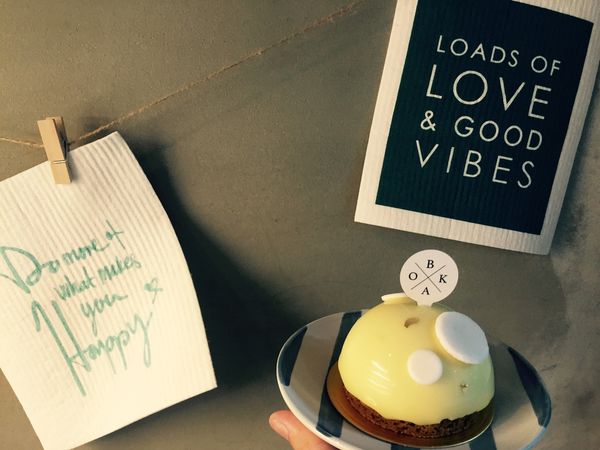 Do more of
what makes
you
Happy
LOADS OF
LOVE
& GOOD
VIBES
B
O K
A